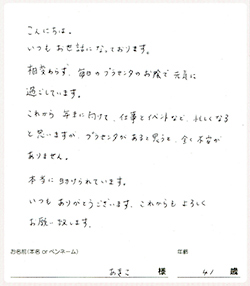 こんにちは。
いつもお世話になっております。
相変わらず、毎日のプラセンタのお陰で元気に
過ごしています。
これから年末に向けて、仕事とイベントなど、忙しくなる
と思いますが、プラセンタがあると思うと、全く不安が
ありません。
本当に助けられています。
いつもありがとうございます。これからもよろしく
お願い致します。
お名前(本名 or ペンネーム) 年齢
あきこ 様 41 歳